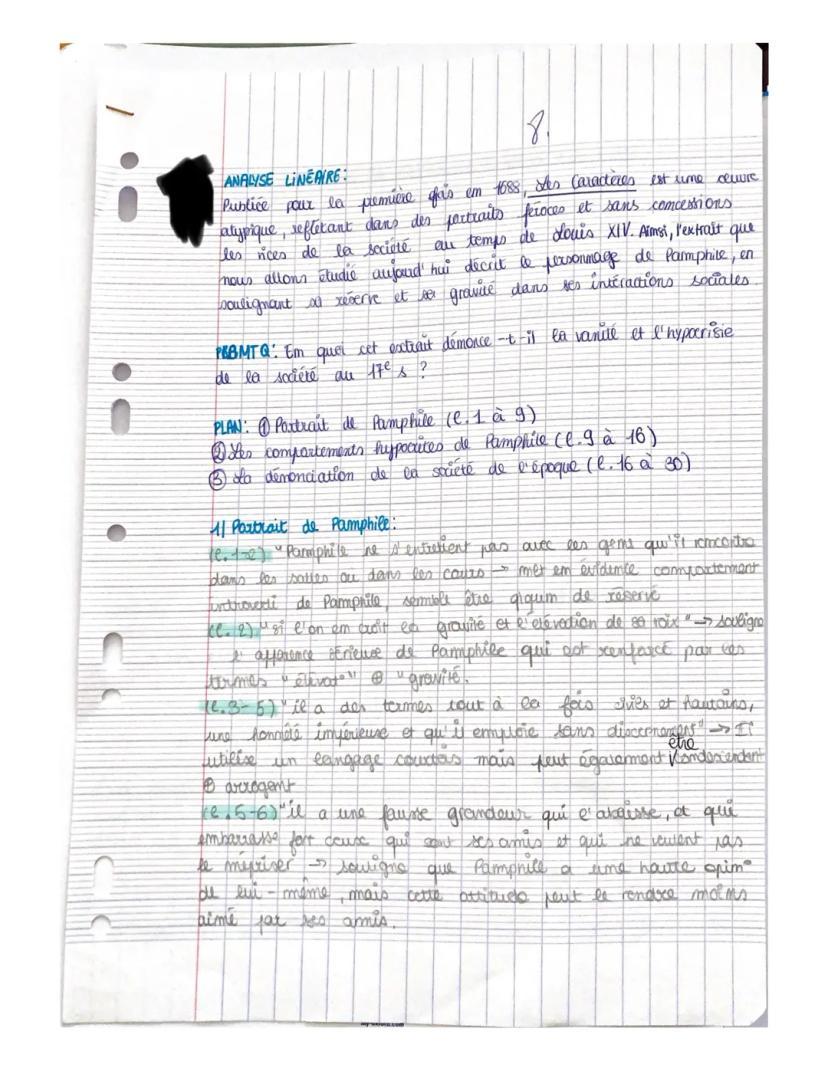 8.
ANALYSE LINÉAIRE:
Publiée pour la première fois en 1688, Les Caractères est une oeuvre
atypique, reflétant dans des portraits féroces et sans concessions
les vices de la société au temps de Louis XIV. Ainsi, l'extrait que
nous allons étudié aujourd'hui décrit le personnage de Pamphile, en
soulignant sa réserve et sa gravité dans ses intéractions sociales.
PRBMTQ: En quoi cet extrait dénonce-t-il la vanité et l'hypocrisie
de la société au 17e s ?
PLAN: ① Portrait de Pamphile (l.1 à 9)
② Les comportements hypocrites de Pamphile (l.9 à 16)
③ La dénonciation de la société de l'époque (l.16 à 30)
1/ Portrait de Pamphile:
(l.1-2) "Pamphile ne s'entretient pas avec les gens qu'il rencontre
dans les salles ou dans les cours → met en évidence comportement
introverti de Pamphile, semble être qlqun de réservé
(l.2) "si l'on en croit la gravité et l'élévation de sa voix" → souligne
l'apparence sérieuse de Pamphile qui est renforcé par les
termes "élévat°" ⊕ "gravité".
(l.3-5) "il a des termes tout à la fois civils et hautains,
une honnêté impérieuse et qu'il emploie sans discernement" → Il
utilise un langage courtois mais peut également être condescendant
⊕ arrogant
(l.5-6) "il a une fausse grandeur qui l'abaisse, et qui
embarrasse fort ceux qui sont ses amis et qui ne veulent pas
le mépriser → souligne que Pamphile a une haute opin°
de lui-même, mais cette attitude peut le rendre moins
aimé par ses amis.